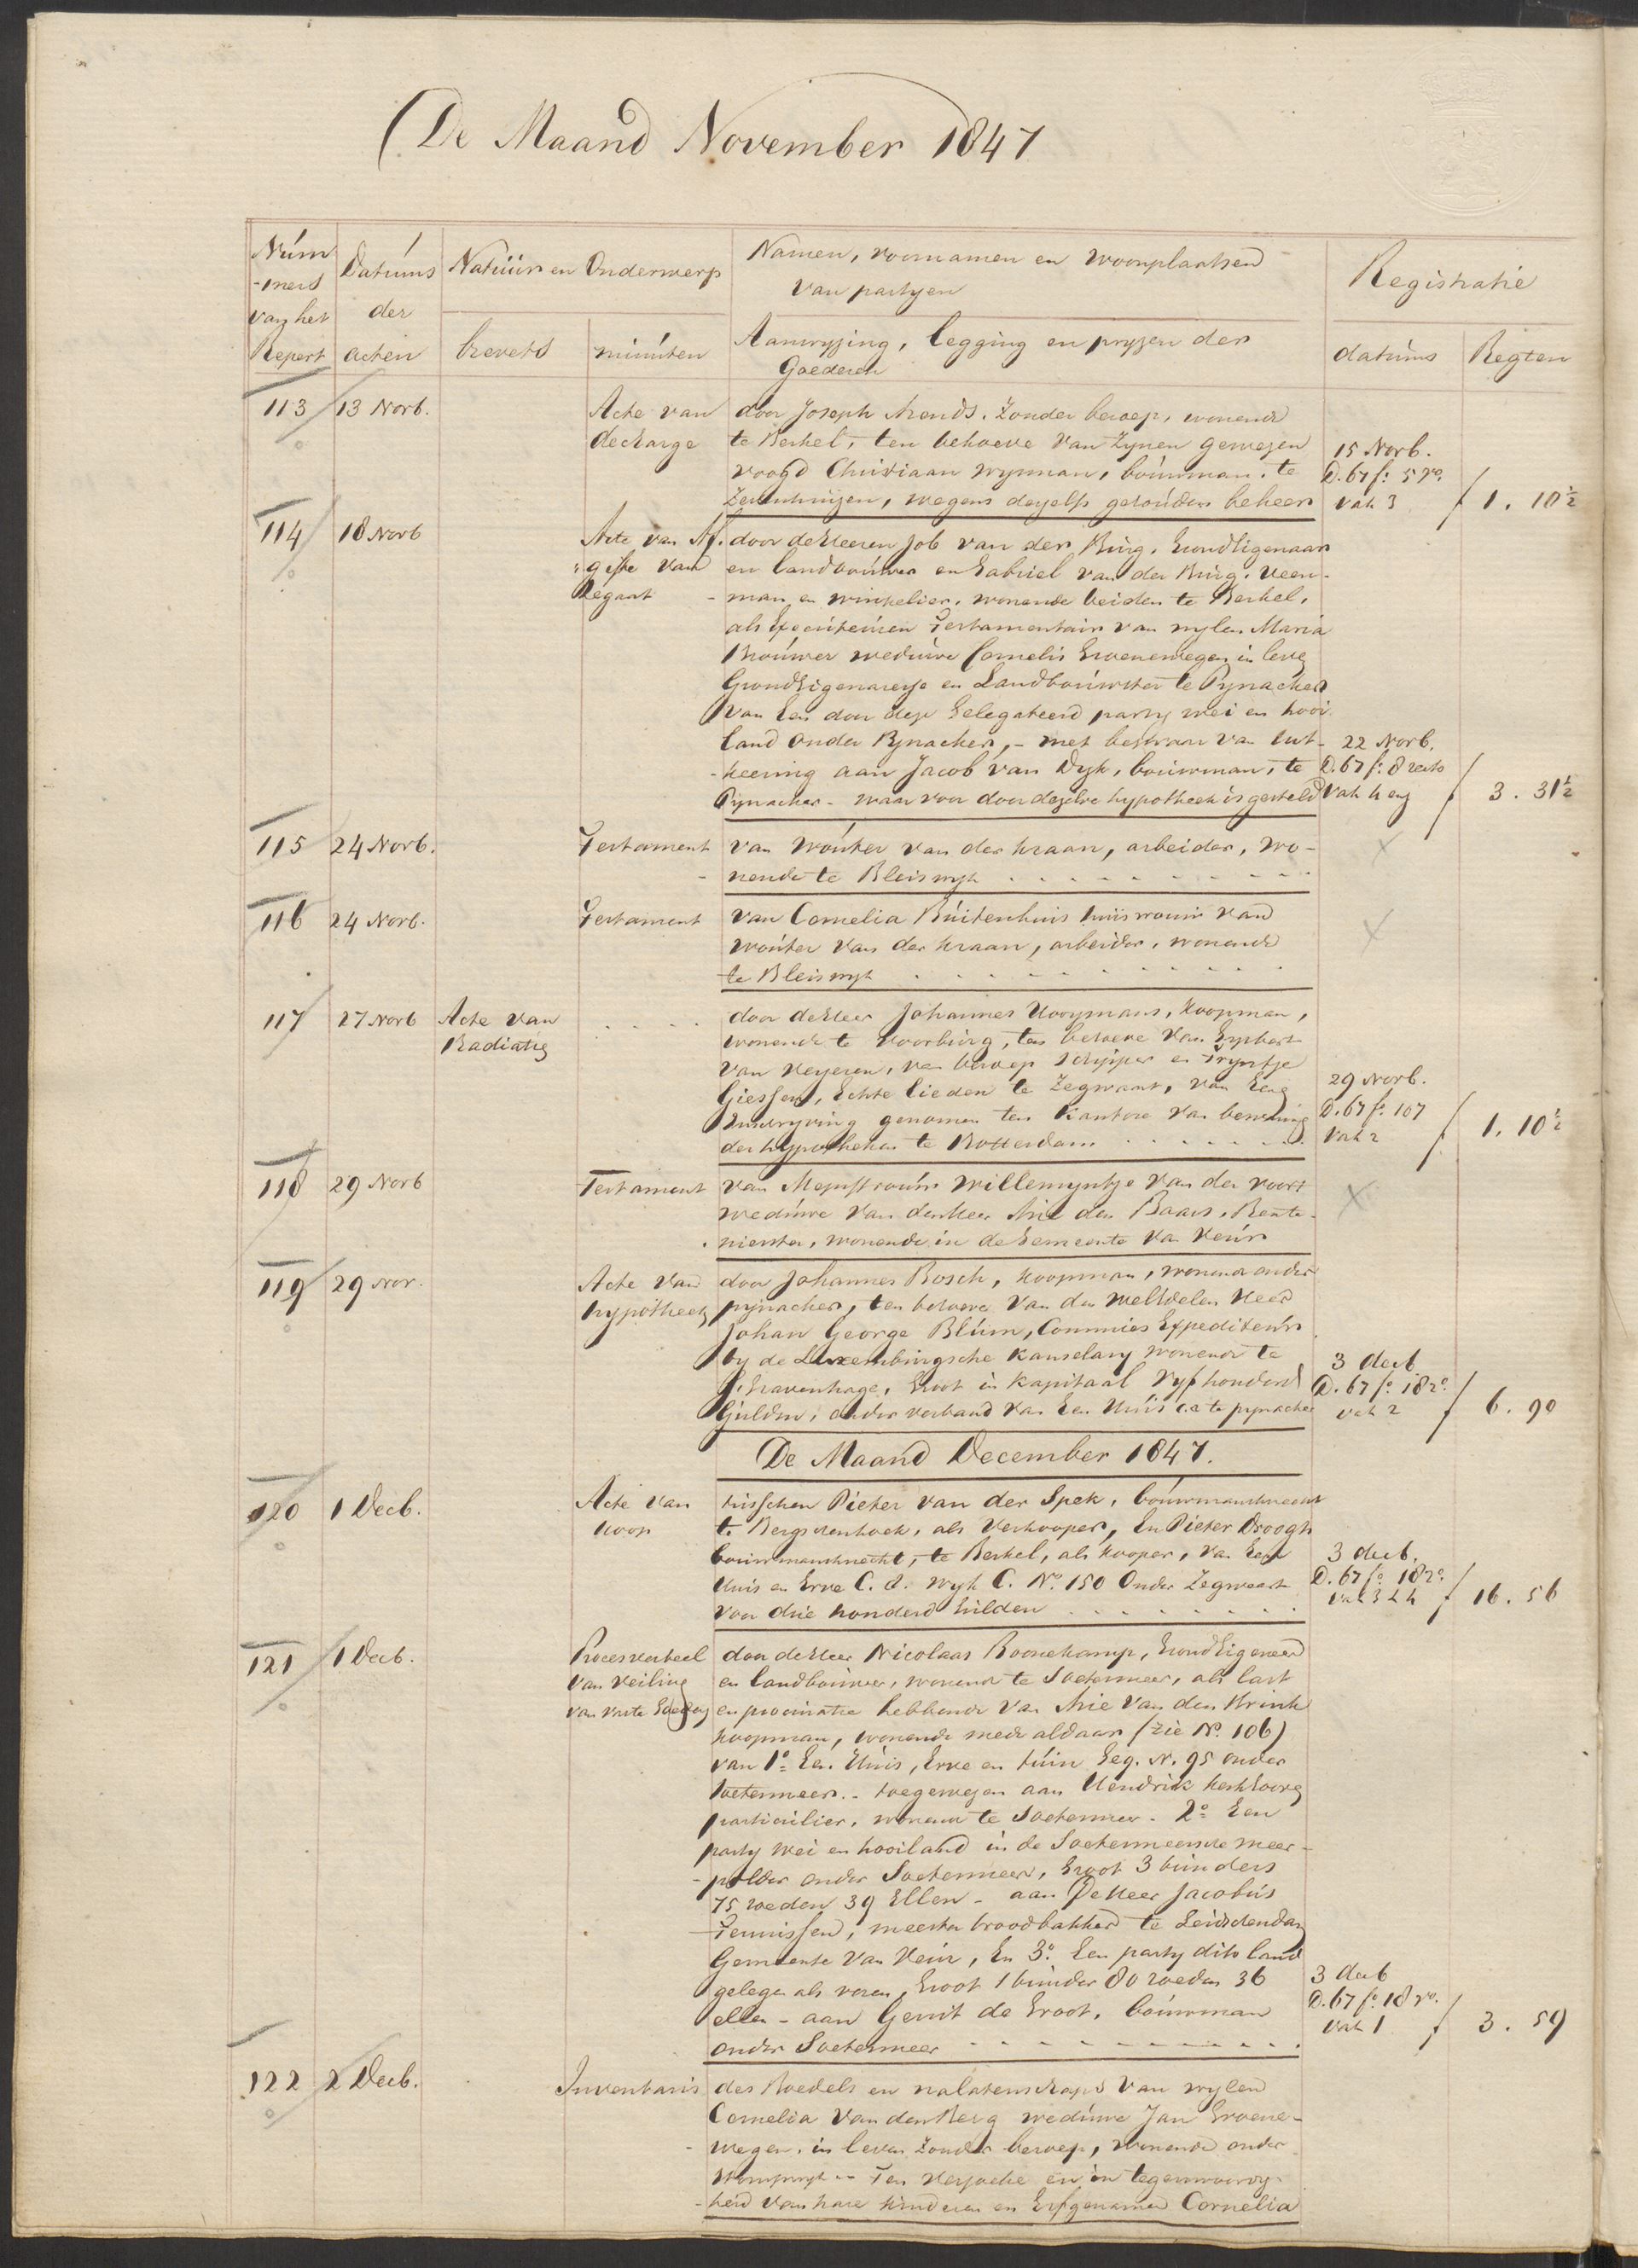 De Maand November 1847
Núm Datúms Natúúr en Onderwerp Namen, voornamen en woonplaatsen Registratie
-mers van partyen
van het der
Repert acten brevets minúten Aanwyzing, legging en pryzen der datúms Regten
Goederen
113 13 Novb. Acte van door Joseph Arends. Zonder beroep, wonende
decharge te Berkel, ten behoeve van zynen gewezen 15 Novb.
voogd Christiaan wynman, boúwman, te D. 67 f: 5 vo.
Zevenhúizen, wegens deszelfs gehoúden beheer vak 3 f 1. 10½
114 18 Novb Acte van Af- door de Heeren Job van der Búrg, Grondeigenaar
:gifte van en landboúwer en Gabriel van der Búrg, veen-
Legaat - man en winkelier, wonende beiden te Berkel,
als Executeúren Testamentair van wylen Maria
Broúwer wedúwe Cornelis Groenewegen in leven
Grondeigenaresse en Landboúwster te Pynacker
van een door deze gelegateerd party wei en hooi
land onder Pynacker, - met bezwaar van uit- 22 Novb.
-keering aan Jacob van Dyk, boúwman, te D. 67 f: 8 recto
Pynacker - waar voor door dezelve hypotheek is gesteld vak 4 en f 3. 31½
115 24 Novb. Testament van Woúter van der kraan, arbeider, wo-
nende te Bleiswyk
116 24 Novb. Testament van Cornelia Búitenhuis húisvroúw van
Woúter van der kraan, arbeider, wonende
te Bleiswyk
117 27 Novb Acte van door de Heer Johannes Hooymans, koopman,
Radiatie wonende te Voorbúrg, ten behoeve van Gysbert
van Heyeren, van beroep schipper en Tryntje
Giessen, Echte lieden te Zegwaart, van Eene 29 Novb.
Inschryving genomen ten kantore van bewaring D. 67 f: 107
der hypotheken te Rotterdam vak 2 f 1. 10½
118 29 Novb Testament van Mejuffroúw Willemyntje van der voort
wedúwe van den Heer Arie den Baars, Rente-
nierster, wonende in de Gemeente van Veúr
119 29 Nov. Acte van door Johannes Bosch, koopman, wonende onder
hypotheek pynacker, ten behoeve van den WelEdelen Heer
Johan George Blúm, Commies Expediteúr
by de Luxemburgsche kanselary wonende te 3 decb
s'Gravenhage, Groot in kapitaal vyf honderd D. 67 fo. 18 ro.
Gúlden, onder verband van Een Húis c.a. te pynacker vak 2 f 6. 90
De Maand December 1847.
120 1 Decb. Acte van tússchen Pieter van der Spek, boúwmansknecht
koop te Bergschenhoek, als verkooper, En Pieter Droogh
boúwmansknecht, te Berkel, als kooper, van Een 3 decb.
Húis en Erve C. a. wyk C. No. 150 Onder Zegwaart D. 67 fo. 18 ro.
voor drie honderd Gúlden vak 3 & 4 f 16. 56
121 1 Decb. Procesverbaal door de Heer Nicolaas Roosekamp, Grondeigenaar
van veiling en landboúwer, wonende te Soetermeer, als last
van vaste Goederen en procúratie hebbende van Arie van den Brink
koopman, wonende mede aldaar (zie No. 106)
van 1o. Een Húis, Erve en túin Geq. N. 95 onder
Soetermeer. - toegewezen aan Hendrik kerkhoven
particúlier, wonende te Soetermeer - 2o. Een
party wei en hooiland in de Soetermeersche meer-
-polder onder Soetermeer, Groot 3 búnders
75 roeden 39 Ellen - aan De Heer Jacobús
Teunissen, meester broodbakker te Leidschendam
Gemeente van Veúr, En 3o. Een party dito land
gelegen als voren, Groot 1 búnder 80 roeden 36 3 decb
ellen - aan Gerrit de Groot, boúwman D. 67 fo. 18 ro.
onder Soetermeer vak 1 f 3. 59
122 2 Decb. Inventaris des Boedels en nalatenschaps van wylen
Cornelia van den Berg wedúwe Jan Groene-
-wegen, in leven Zonder beroep, wonende onder
Stompwyk - Ten verzoeke en in tegenwoordig-
-heid van hare kinderen en Erfgenamen Cornelia